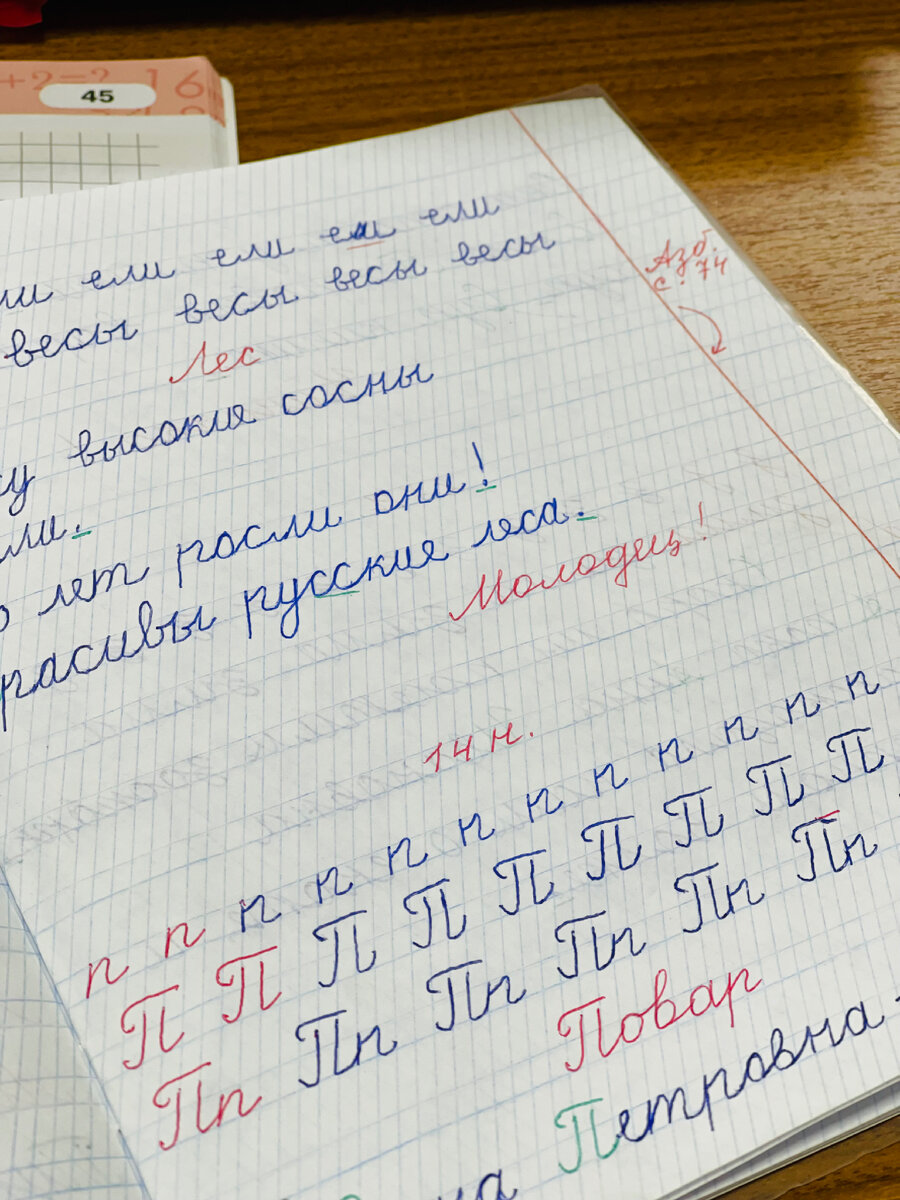 +2=? 16
45
ели ели ели ели
весы весы весы весы
Азб.
с. 74
Лес
высокие сосны
.
лет росли они!
русские леса.
Молодец!
14 н.
п п п п п п п п п п п п
П П П П П П П П П П
Пп Пп Пп Пп Пп Пп
Повар
Петровна -